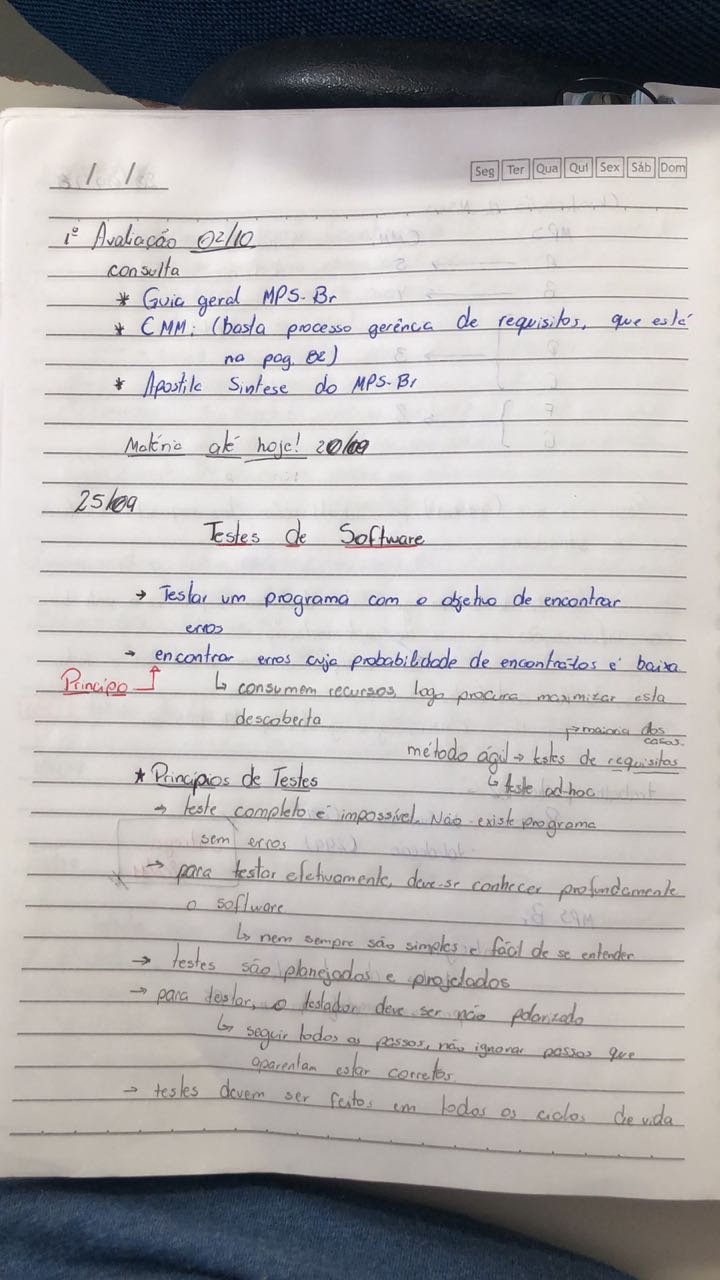 / / Seg Ter Qua Qui Sex Sáb Dom
1º Avaliação 02/10
consulta
* Guia geral MPS-Br
* CMM: (basta processo gerência de requisitos, que está
na pag. 82)
* Apostila Síntese do MPS-Br
Matéria até hoje! 20/09
25/09
Testes de Software
→ Testar um programa com o objetivo de encontrar
erros
→ encontrar erros cuja probabilidade de encontrá-los é baixa
Principo ↳ consumem recursos, logo procura maximizar esta
descoberta
↱ maioria dos
casos.
método ágil → testes de requisitos
↳ teste ad-hoc
★ Princípios de Testes
→ teste completo é impossível. Não existe programa
sem erros
→ para testar efetivamente, deve-se conhecer profundamente
o software
↳ nem sempre são simples e fácil de se entender
→ testes são planejados e projetados
→ para testar, o testador deve ser não polarizado
↳ seguir todos os passos, não ignorar passos que
aparentam estar corretos
→ testes devem ser feitos em todos os ciclos de vida